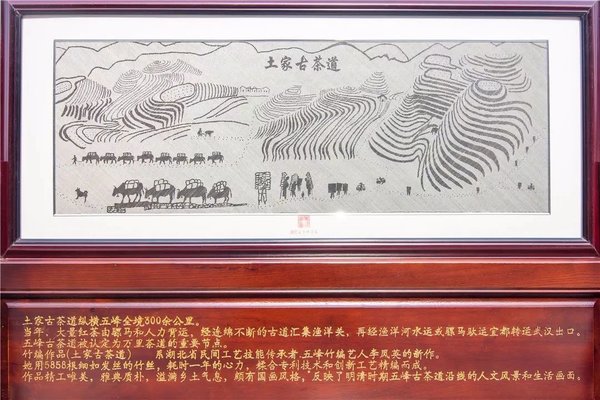 土家古茶道
土家古茶道纵横五峰全境300余公里。
当年，大量红茶由骡马和人力背运，经连绵不断的古道汇集渔洋关，再经渔洋河水运或骡马驮运宜都转运武汉出口。
五峰古茶道被认定为万里茶道的重要节点。
竹编作品《土家古茶道》 系湖北省民间工艺技能传承者、五峰竹编艺人李凤英的新作。
她用5858根细如发丝的竹丝，耗时一年的心力，糅合专利技术和创新工艺精编而成。
作品精工唯美，雅典质朴，溢满乡土气息，颇有国画风格，反映了明清时期五峰古茶道沿线的人文风景和生活画面。